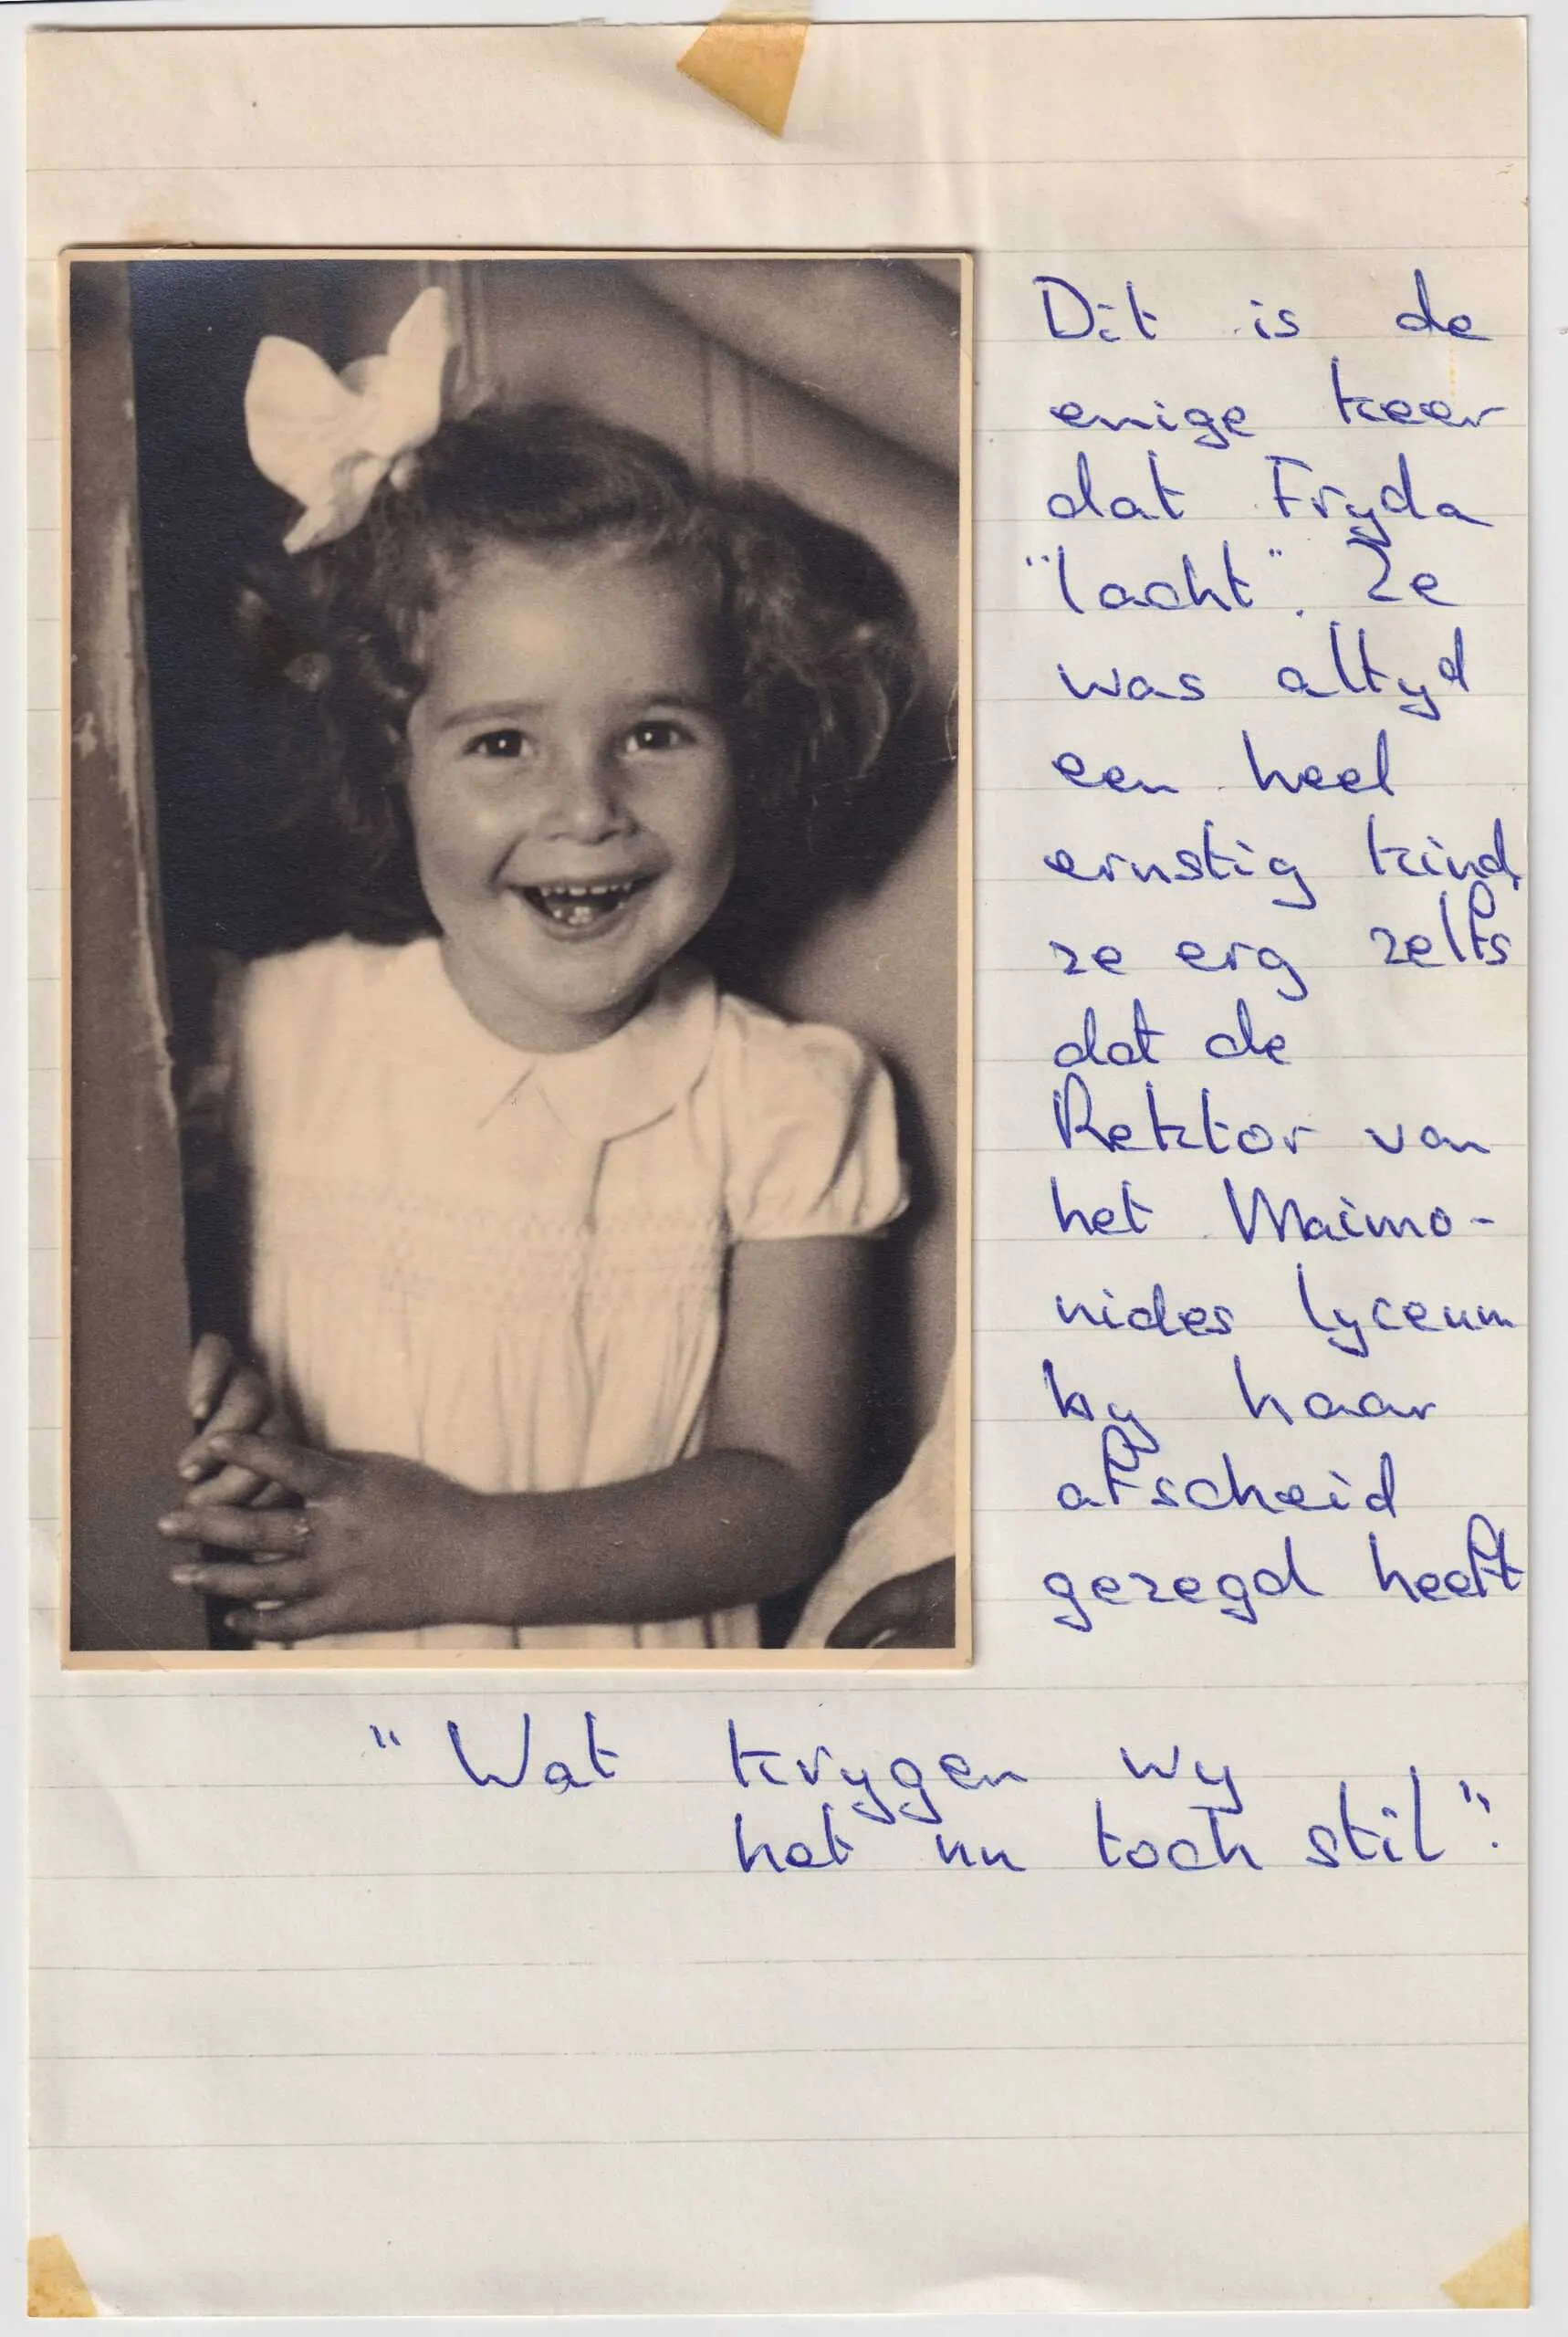 Dit is de
enige keer
dat Fryda
"lacht". Ze
was altyd
een heel
ernstig kind,
ze erg zelfs
dat de
Rektor van
het Maimo-
nides lyceum
by haar
afscheid
gezegd heeft
"Wat krygen wy
het nu toch stil".